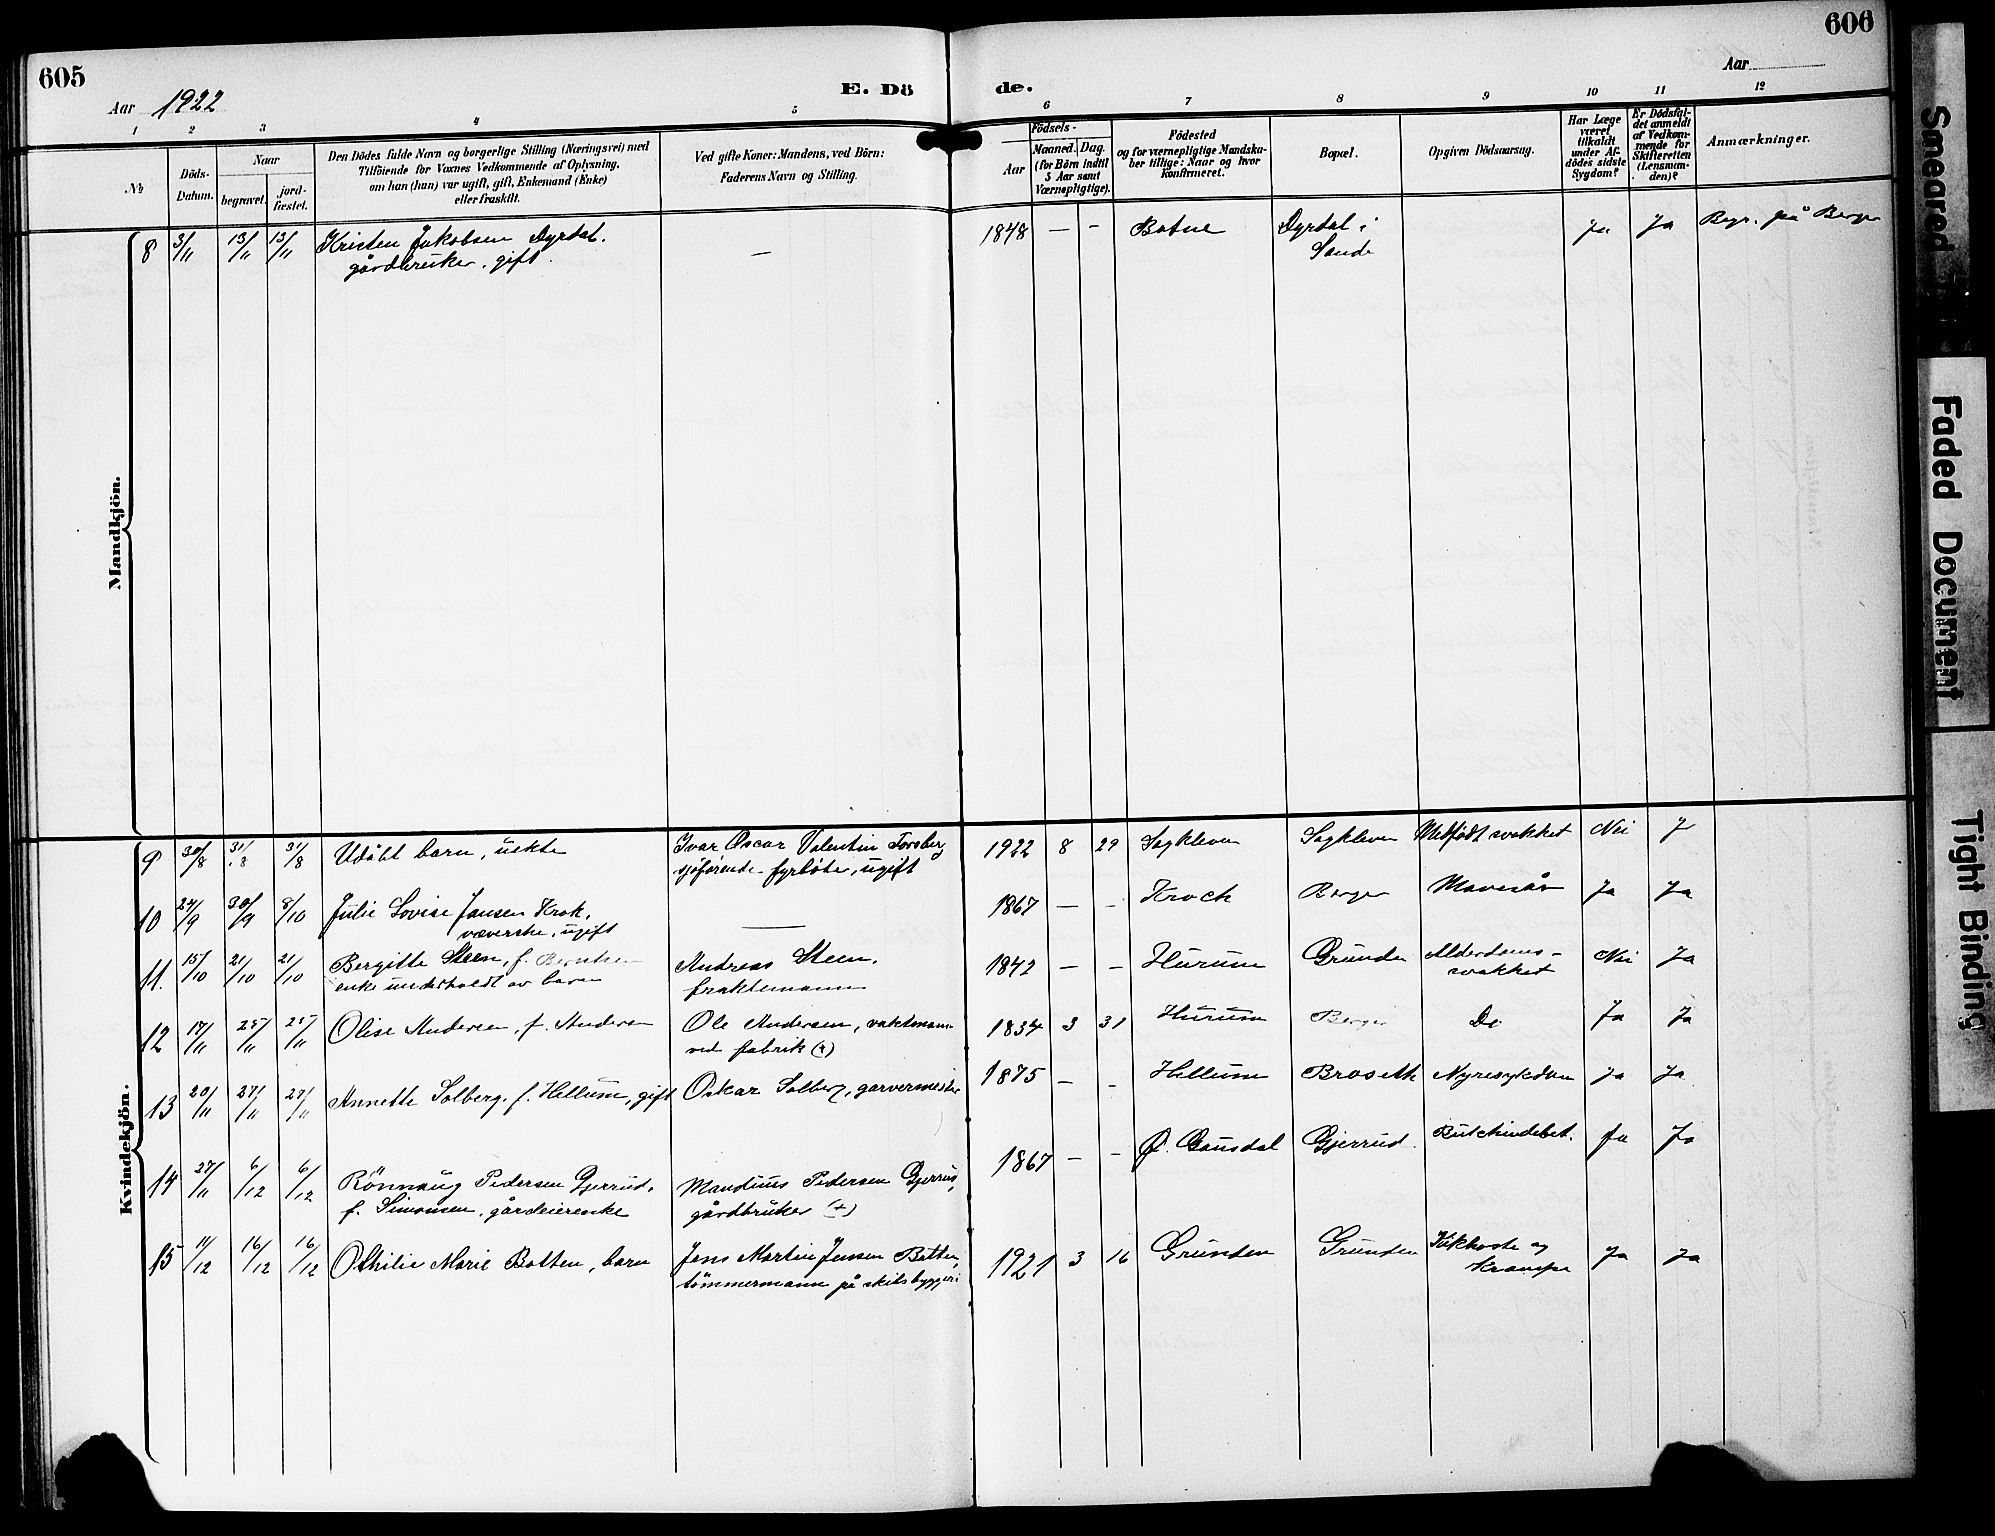 605
606
Aar 1922
E. Dö
de.
Aar
1 2 3 4 5
6 7 8 9 10 11 12
№
Döds-
Datum.
Naar
begravet.
jord-
fæstet.
Den Dödes fulde Navn og borgerlige Stilling (Næringsvei) med
Tilföiende for Voxnes Vedkommende af Oplysning,
om han (hun) var ugift, gift, Enkemand (Enke)
eller fraskilt.
Ved gifte Koner: Mandens, ved Börn:
Faderens Navn og Stilling.
Födsels-
Aar
Maaned. Dag.
(for Börn indtil
5 Aar samt
Værnepligtige).
Födested
og for værnepligtige Mandska-
ber tillige: Naar og hvor
konfirmeret.
Bopæl.
Opgiven Dödsaarsag.
Har Læge
været
tilkaldt
under Af-
dödes sidste
Sygdom?
Er Dödsfal-
det anmeldt
af Vedkom-
mende for
Skifteretten
(Lensman-
den)?
Anmærkninger.
Mandkjön.
8 3/11 13/11 13/11 Kristen Jakobsen Dyrdal. — 1848 — - Botne Dyrdal i Ja Ja Begr. på Berger
gårdbruker, gift. Sande
Kvindekjön.
9 30/8 31/8 31/8 Udöbt barn, uekte Ivar Oscar Valentin Forsberg 1922 8 29 Sagkleven Sagkleven Medfödt svakhet Nei J
sjøførende fyrböter, ugift
10 24/9 30/9 8/10 Julie Lovise Jansen Krok, — 1867 — - Krock Berger Mavesår Ja Ja
væverske, ugift
11. 15/10 21/10 21/10 Bergitte Steen, f. Berntsen Andreas Steen, 1842 — - Hurum Grunden Alderdoms-
enke underholdt av barn fraktemann svakhet Nei Ja
12 17/11 25/11 25/11 Olise Andersen, f. Andersen Ole Andersen, vaktmann 1834 3 31 Hurum Berger Do Ja Ja
ved fabrik (+)
13 20/11 27/11 27/11 Annette Solberg, f. Hellum, gift Oskar Solberg, garvermester 1875 — - Hellum Braseth Nyresykdom Ja Ja
14 27/11 6/12 6/12 Rönnaug Pedersen Gjerrud, Mandius Pedersen Gjerrud, 1867 — - Ø. Gausdal Gjerrud Ja Ja
f. Simonsen, gårdeierenke gårdbruker (+)
15 11/12 16/12 16/12 Othilie Marie Botten, barn Jens Martin Jensen Botten, 1921 3 16 Grunden Grunden Kikhoste og Ja Ja
tömmermann på skibsbyggeri krampe
Smeared
Faded Document
Tight Binding